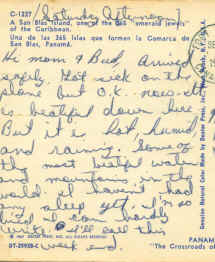 [Saturday Afternoon]
C-1227
A San Blas Island, one of the 365 "emerald jewels"
of the Caribbean.
Una de las 365 Islas que forman la Comarca de
San Blas, Panamá.
Hi mom & Bud, Arrived
safely. Got sick on the
plane, but O.K. now. It
is beatiful down here
But it is hot, humid
and raining. Some of
the most beatiful waters
and mountains in the
world. I haven't had
any sleep yet. I'm so
tired I can hardly
write. I'll call this
week end.
DT-29920-C
PANAM
"The Crossroads of